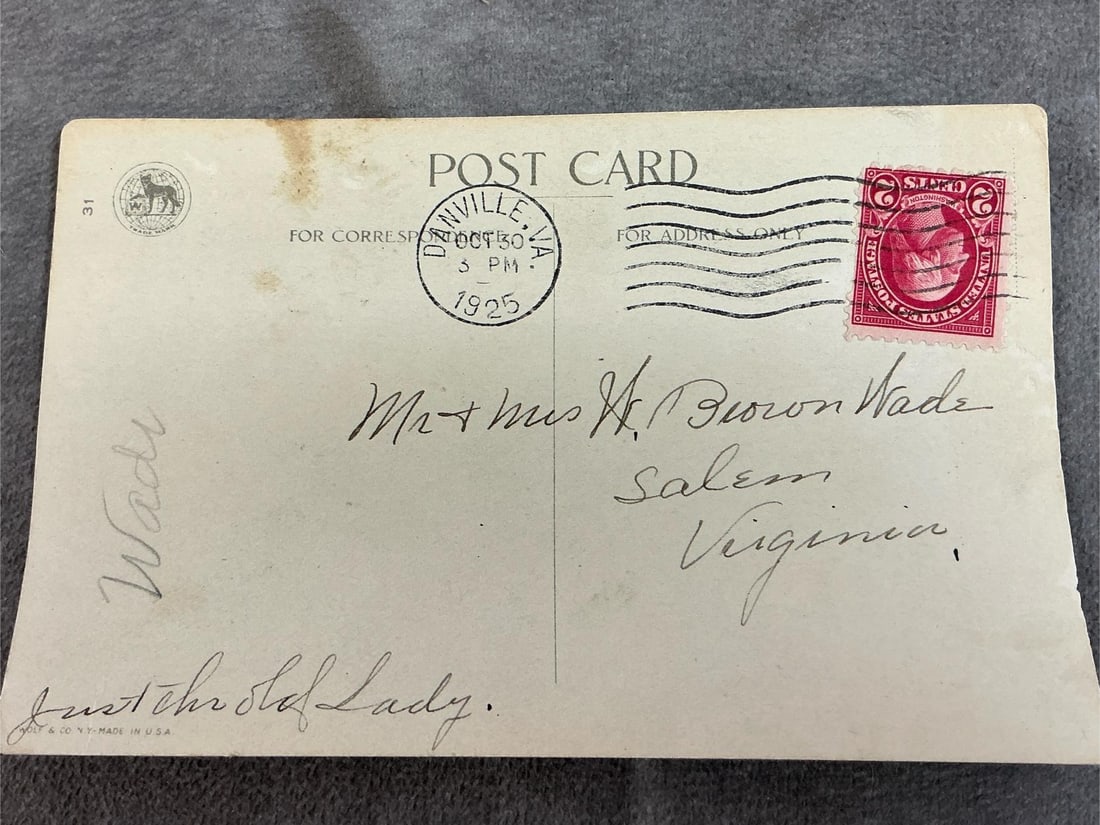 POST CARD
31
W
TRADE MARK
FOR CORRESPONDENCE
FOR ADDRESS ONLY
DANVILLE, VA.
OCT 30
3 PM
1925
2 CENTS 2
WASHINGTON
UNITED STATES POSTAGE
Mr + Mrs H. Brown Wade
Salem
Virginia.
Wade
Just the old Lady.
WOLF & CO. N.Y. - MADE IN U.S.A.